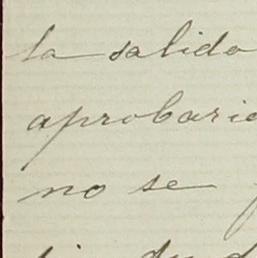 ta salido
aprobacio
no se